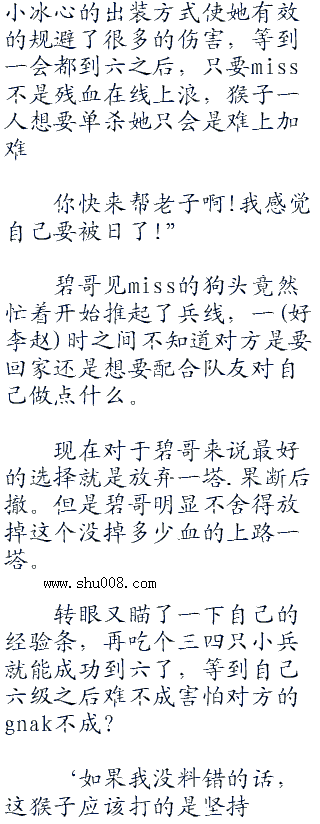 小冰心的出装方式使她有效
的规避了很多的伤害，等到
一会都到六之后，只要miss
不是残血在线上浪，猴子一
人想要单杀她只会是难上加
难
你快来帮老子啊!我感觉
自己要被日了!”
碧哥见miss的狗头竟然
忙着开始推起了兵线，一(好
李赵)时之间不知道对方是要
回家还是想要配合队友对自
己做点什么。
现在对于碧哥来说最好
的选择就是放弃一塔.果断后
撤。但是碧哥明显不舍得放
掉这个没掉多少血的上路一
塔。
www.shu008.com
转眼又瞄了一下自己的
经验条，再吃个三四只小兵
就能成功到六了，等到自己
六级之后难不成害怕对方的
gnak不成？
‘如果我没料错的话，
这猴子应该打的是坚持